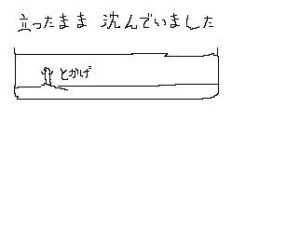 立ったまま 沈んでいました
とかげ